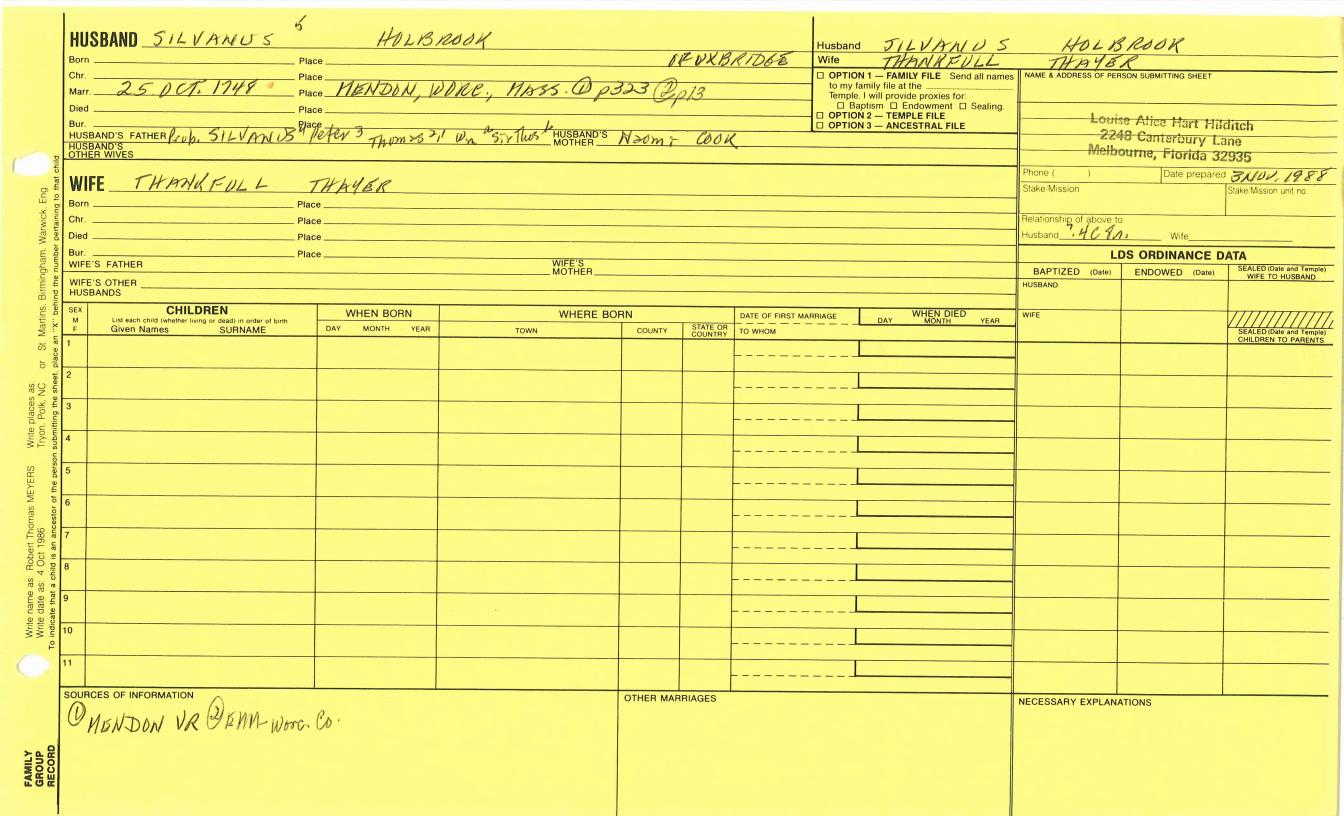 HUSBAND SILVANUS 5 HOLBROOK
Born Place OF UXBRIDGE
Chr. Place
Marr. 25 OCT. 1748 Place MENDON, WORC., MASS. ① p323 ② p13
Died Place
Bur. Place
HUSBAND'S FATHER Prob. SILVANUS 4 Peter 3 Thomas 2, 1 HUSBAND'S MOTHER Naomi COOK
HUSBAND'S OTHER WIVES
WIFE THANKFULL THAYER
Born Place
Chr. Place
Died Place
Bur. Place
WIFE'S FATHER WIFE'S MOTHER
WIFE'S OTHER HUSBANDS
Husband SILVANUS HOLBROOK
Wife THANKFULL THAYER
☐ OPTION 1 — FAMILY FILE Send all names
to my family file at the
Temple. I will provide proxies for:
☐ Baptism ☐ Endowment ☐ Sealing.
☐ OPTION 2 — TEMPLE FILE
☐ OPTION 3 — ANCESTRAL FILE
NAME & ADDRESS OF PERSON SUBMITTING SHEET
Louise Alice Hart Hilditch
2248 Canterbury Lane
Melbourne, Florida 32935
Phone ( ) Date prepared 3 NOV. 1988
Stake/Mission Stake/Mission unit no.
Relationship of above to
Husband Wife
LDS ORDINANCE DATA
BAPTIZED (Date) ENDOWED (Date) SEALED (Date and Temple) WIFE TO HUSBAND
HUSBAND
WIFE
SEALED (Date and Temple) CHILDREN TO PARENTS
SEX M F
CHILDREN
List each child (whether living or dead) in order of birth
Given Names SURNAME
WHEN BORN
DAY MONTH YEAR
WHERE BORN
TOWN COUNTY STATE OR COUNTRY
DATE OF FIRST MARRIAGE
TO WHOM
WHEN DIED
DAY MONTH YEAR
1
2
3
4
5
6
7
8
9
10
11
SOURCES OF INFORMATION
① MENDON VR ② EMM Worc. Co.
OTHER MARRIAGES
NECESSARY EXPLANATIONS
Write name as Robert Thomas MEYERS Write places as Tryon, Polk, NC or St. Martins, Birmingham, Warwick, Eng.
Write date as 4 Oct 1986
To indicate that a child is an ancestor of the person submitting the sheet, place an "X" behind the number pertaining to that child
FAMILY GROUP RECORD